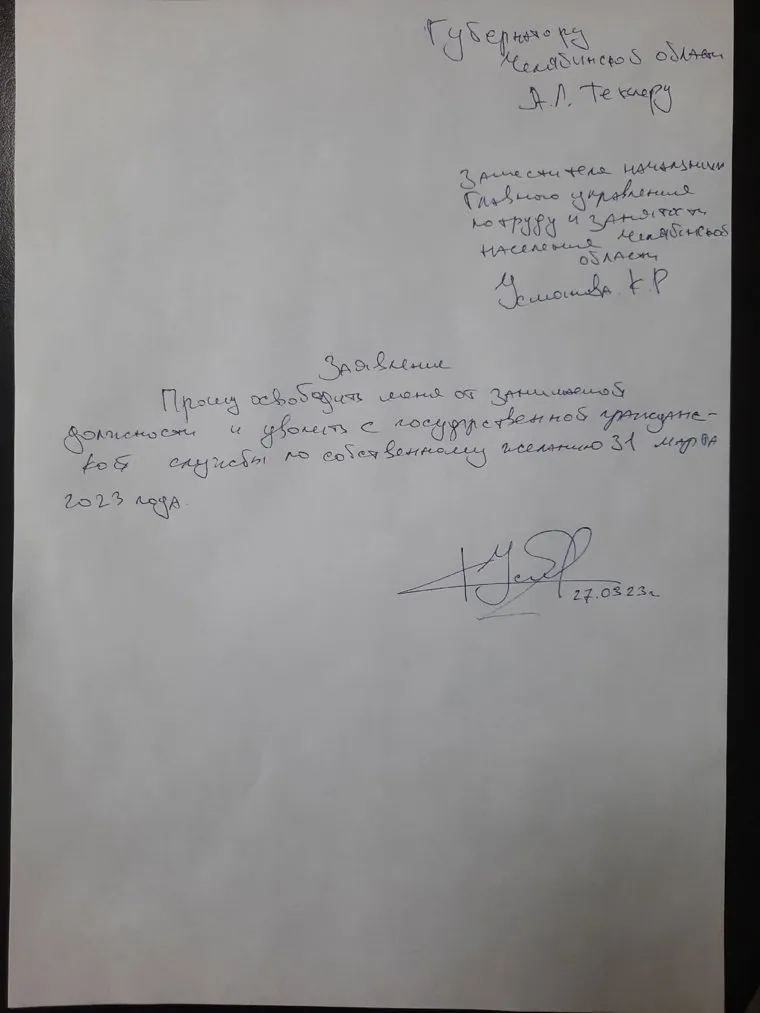 Губернатору
Челябинской области
А.Л. Текслеру
Заместителя начальника
Главного управления
по труду и занятости
населения Челябинской
области
Усманова К.Р
Заявление
Прошу освободить меня от занимаемой
должности и уволить с государственной гражданс-
кой службы по собственному желанию 31 марта
2023 года.
27.03.23г.